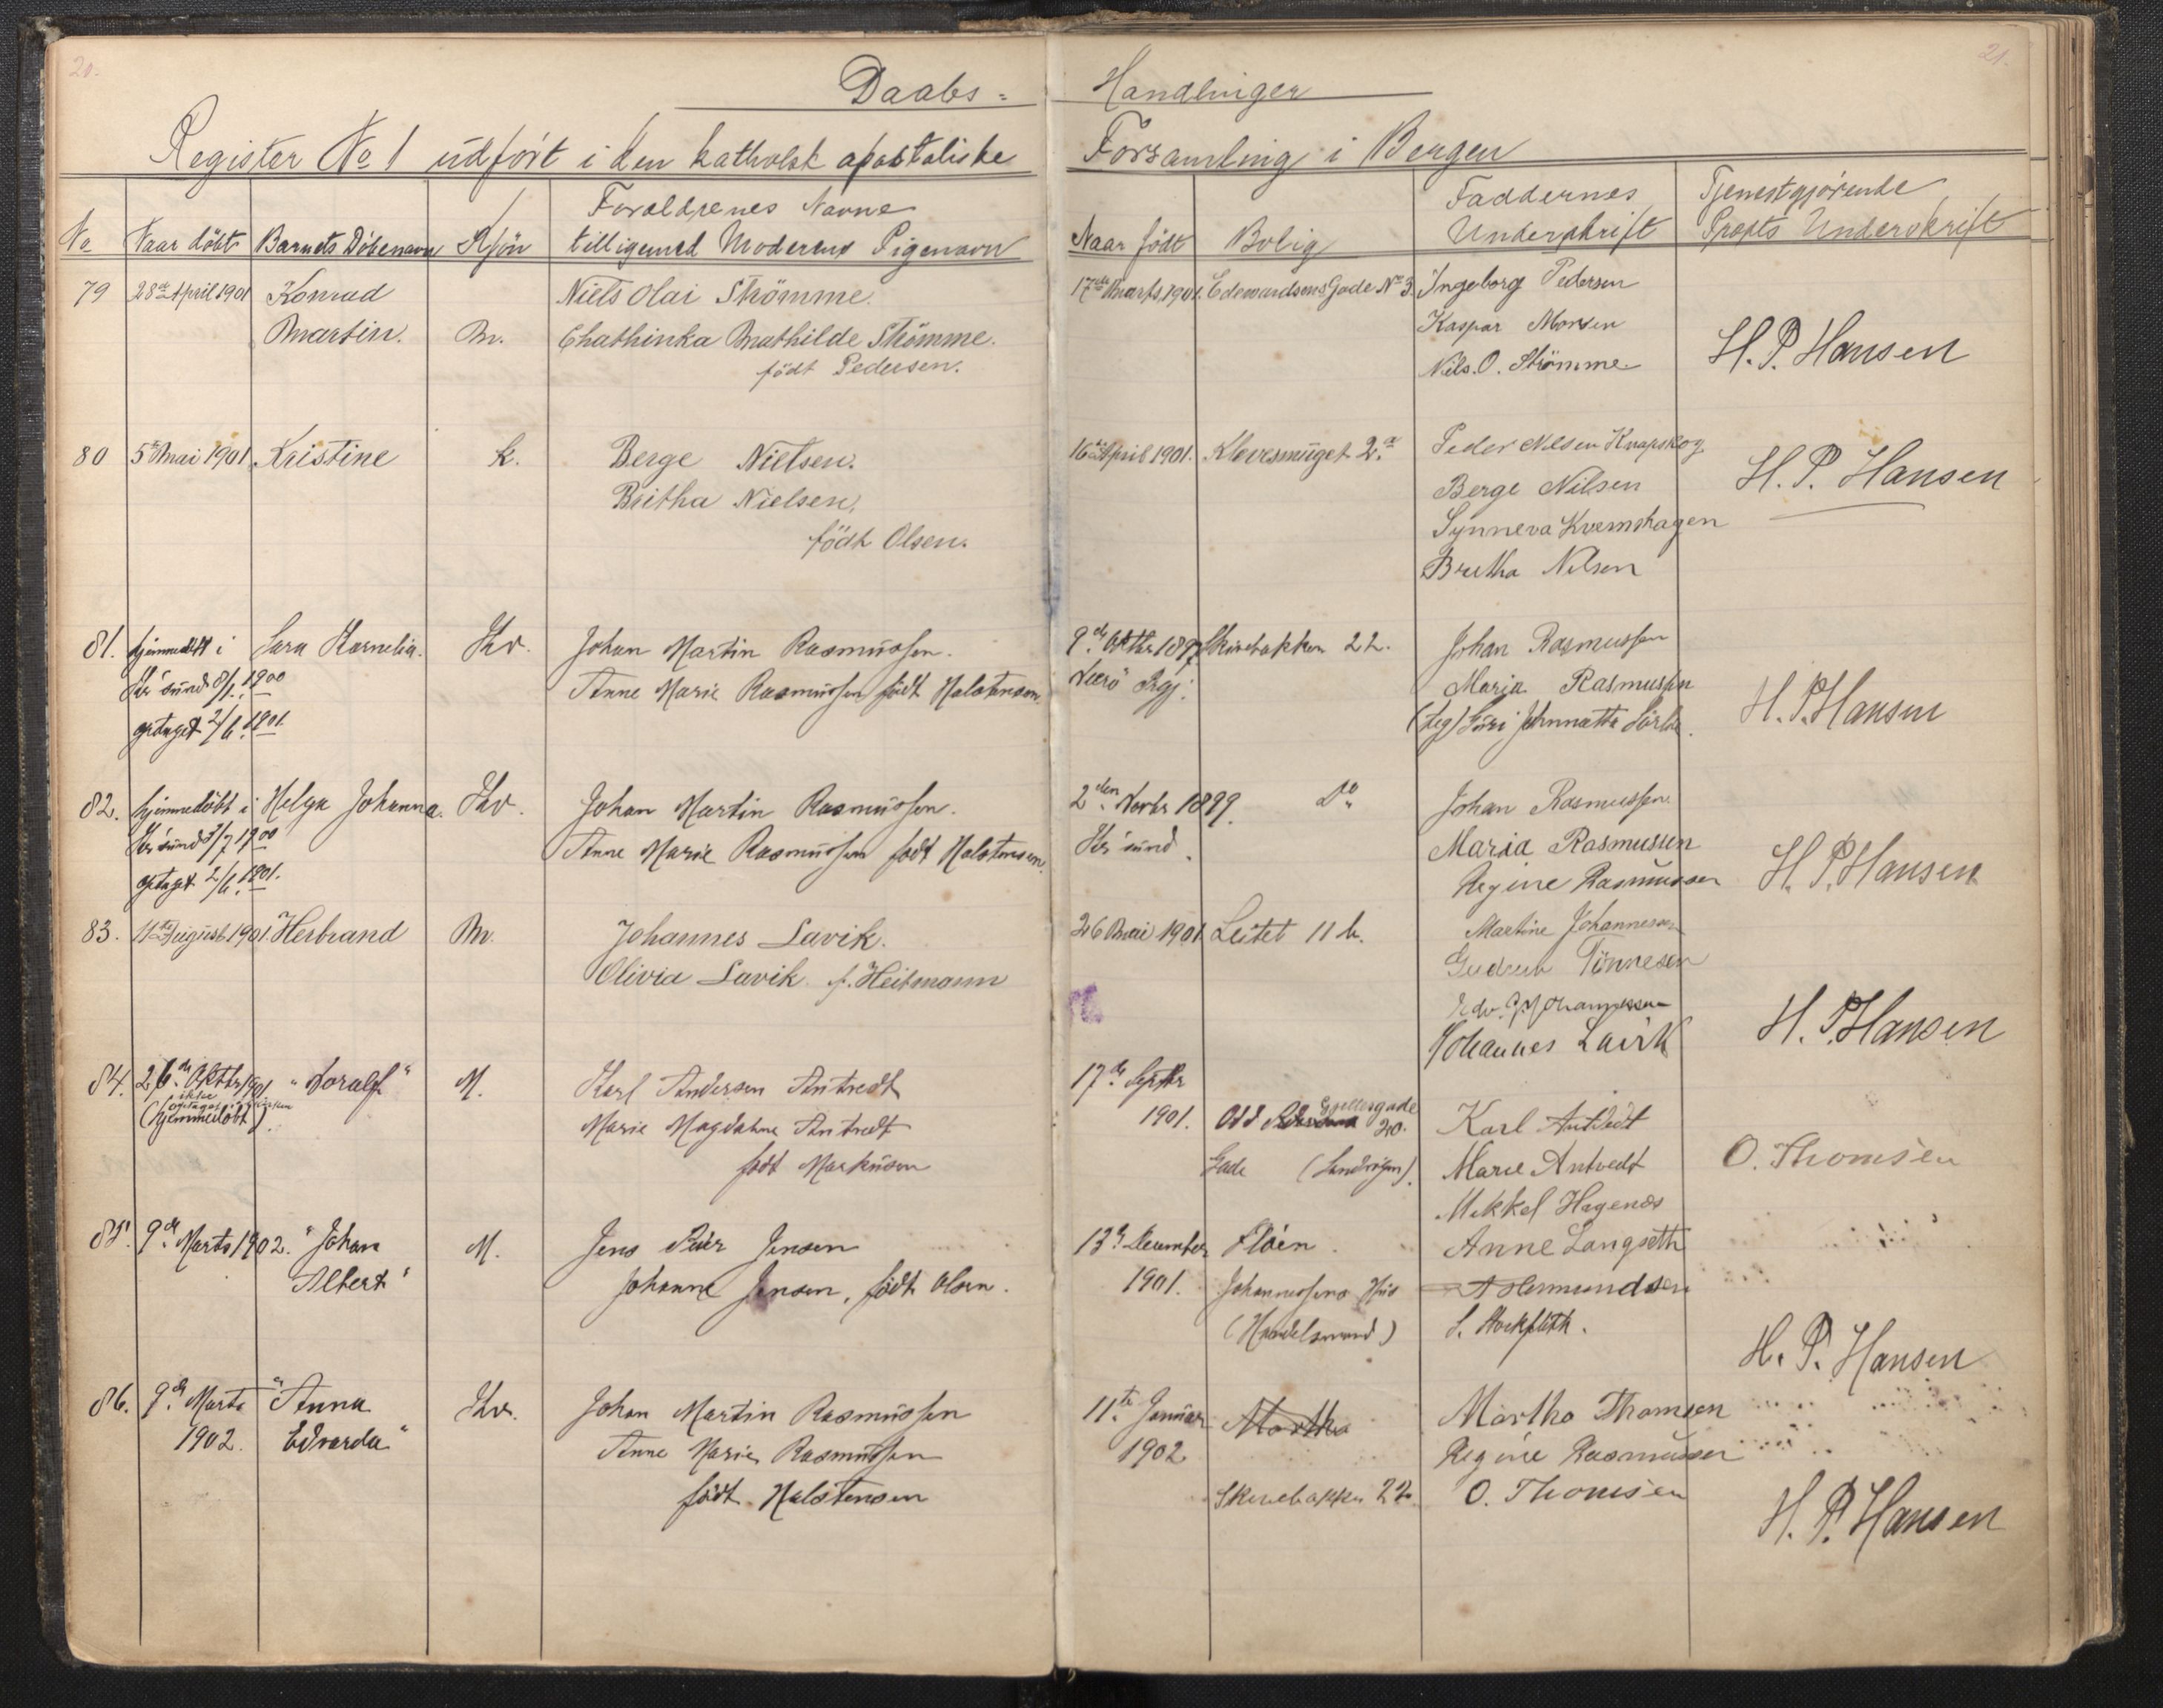 20.
21.
Daabs=
Handlinger
Register No 1 udført i den katholsk apostoliske
Forsamling i Bergen
No
Naar döbt
Barnets Döbenavn
Kjön
Foraldrenes Navne
tilligemed Moderens Pigenavn
Naar födt
Bolig
Faddernes
Underskrift
Tjenestgjørende
Præsts Underskrift
79 28de April 1901 Konrad
Martin. M.
Niels Olai Strömme.
Chathinka Mathilde Strömme.
födt Pedersen.
17de Marts 1901. Edvardsens Gade No 3.
Ingeborg Pedersen
Kaspar Monsen
Nils. O. Strömme
H. P. Hansen
80 5te Mai 1901 Kristine K.
Berge Nielsen.
Britha Nielsen,
födt Olsen.
16de April 1901. Klovesmuget 2.a
Peder Nilsen Knapskog
Berge Nilsen
Synneva Kvernhagen
Britha Nilsen
H. P. Hansen
81. hjemmedöbt i Sara Kornelia. Kv.
Kr sund 8/1 1900
optaget 2/6 1901.
Johan Martin Rasmussen.
Anne Marie Rasmussen födt Halstensen
9de Oktbr 1897 Skivebakken 22.
Veerö Prgj.
Johan Rasmussen
Maria Rasmussen
H. P. Hansen
82. hjemmedöbt i Helga Johanna. Kv.
Kr sund 3/7 1900
optaget 2/6 1901.
Johan Martin Rasmussen.
Anne Marie Rasmussen födt Halstensen.
2den Novbr 1899. Do
Kr sund.
Johan Rasmussen
Maria Rasmussen
Regine Rasmussen
H. P. Hansen
83. 11te August 1901. Herbrand M.
Johannes Lavik.
Olivia Lavik f. Heitmann
26 Mai 1901 Leitet 11 b.
Martine Johannesen
Gudrun Tönnesen
Edv. Johannessen
Johannes Lavik
H. P. Hansen
84. 26de Oktbr 1901 "Toralf" M.
ikke
optaget i kirken
(hjemmedöbt).
Karl Andersen Antvedt
Marie Magdalene Antvedt
födt Markusen
17de Septbr
1901. Odd
Gjellesgade
20.
Gade (Sandvigen).
Karl Antvedt
Marie Antvedt
Mikkel Hagenæs
O. Thomsen
85. 9de Marts 1902. "Johan
Albert" M.
Jens Peder Jensen
Johanne Jensen, födt Olsen.
13de December Flöen.
1901. Johannessens Hus
(Handelsmand)
Anne Langseth
A Osmundsen
S. Stockfleth.
H. P. Hansen
86. 9de Marts "Anna
1902. Edvarda" Kv.
Johan Martin Rasmussen
Anne Marie Rasmussen
födt Halstensen
11te Januar Martha
1902
Skivebakken 22.
Martha Thomsen
Regine Rasmussen
O. Thomsen
H. P. Hansen